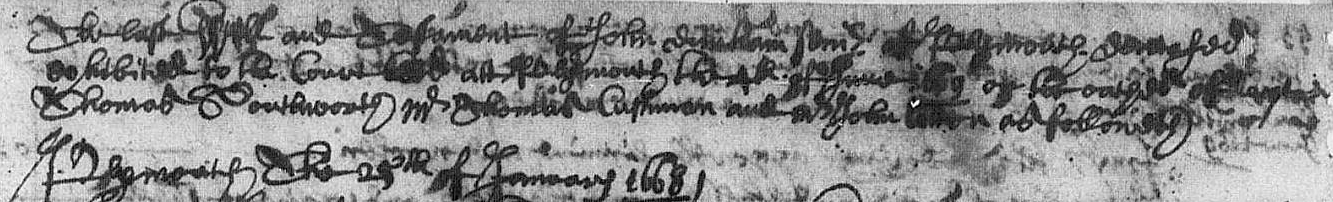 The last Will and Testament of John Dunham senir of Plymouth Deceased
exhibited to the Court held att Plymouth the 4th of June 1669 on the oathes of Captaine
Thomas Southworth mr Thomas Cushman and mr John Cotton as followeth
Plymouth The 25th of January 1668